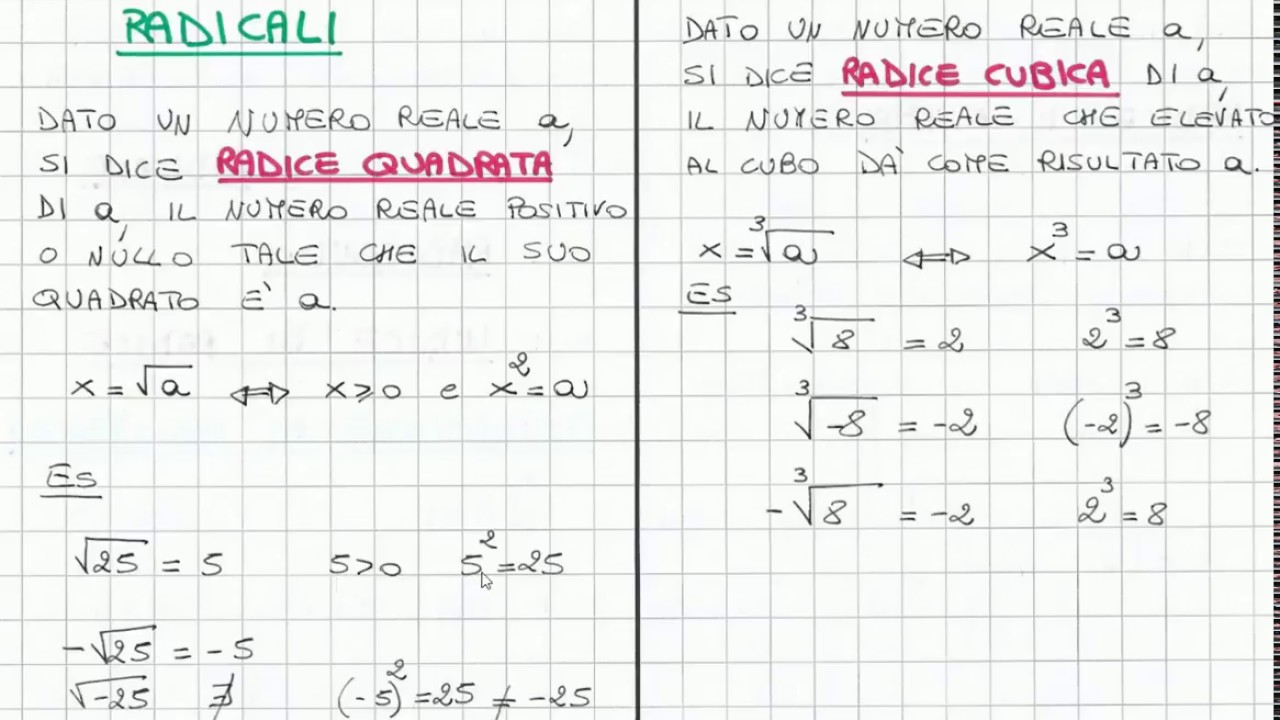 RADICALI
DATO UN NUMERO REALE a,
SI DICE RADICE QUADRATA
DI a, IL NUMERO REALE POSITIVO
O NULLO TALE CHE IL SUO
QUADRATO E' a.
x = √a ⟺ x ⩾ 0 e x² = a
ES
√25 = 5 5 > 0 5² = 25
-√25 = -5
√-25 ∄ (-5)² = 25 ≠ -25
DATO UN NUMERO REALE a,
SI DICE RADICE CUBICA DI a,
IL NUMERO REALE CHE ELEVATO
AL CUBO DA' COME RISULTATO a.
x = ³√a ⟺ x³ = a
ES
³√8 = 2 2³ = 8
³√-8 = -2 (-2)³ = -8
-³√8 = -2 2³ = 8